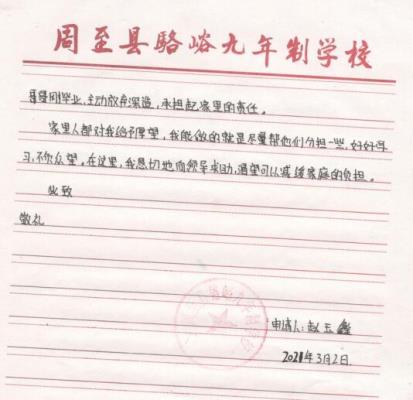 周至县骆峪九年制学校
哥哥刚毕业，主动放弃深造，承担起家里的责任。
家里人都对我给予厚望，我能做的就是尽量帮他们分担一些，好好学
习，不负众望。在这里，我恳切地向领导求助，渴望可以减缓家庭的负担。
此致
敬礼
申请人：赵玉鑫
2021年3月2日